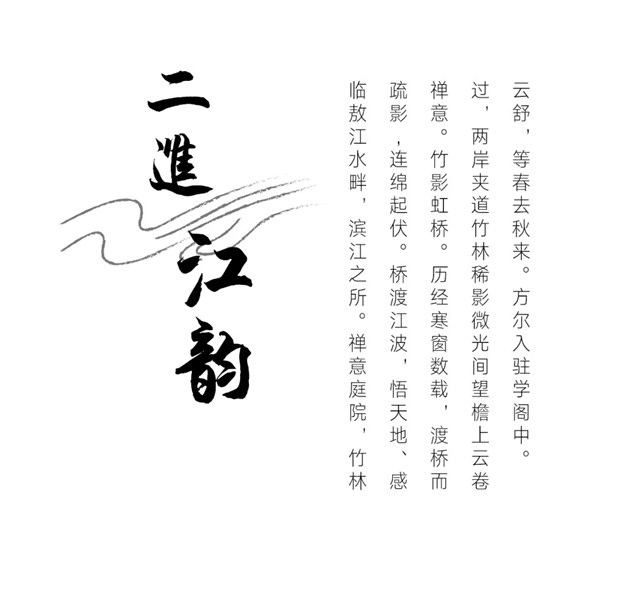 二進
江韵
临敖江水畔，滨江之所。禅意庭院，竹林
疏影,连绵起伏。桥渡江波，悟天地、感
禅意。竹影虹桥。历经寒窗数载，渡桥而
过，两岸夹道竹林稀影微光间望檐上云卷
云舒，等春去秋来。方尔入驻学阁中。